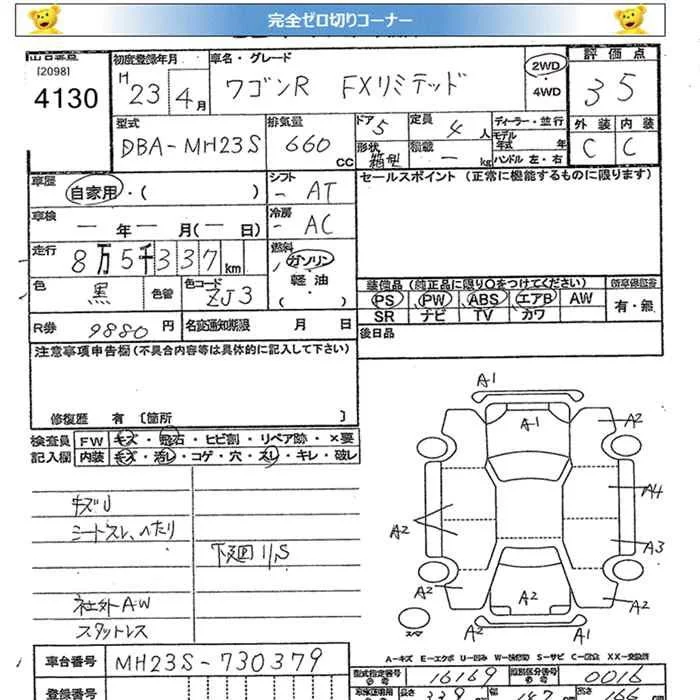 完全ゼロ切りコーナー
出品番号 初度登録年月 車名・グレード 2WD 評価点
[2098] H 23年 4月 ワゴンR FXリミテッド 4WD 3 5
4130
型式 排気量 ドア 5 定員 4人 ディーラー・並行 外装 内装
DBA-MH23S 660cc 形状 箱型 積載 - kg モデル年式 年 C C
ハンドル 左・右
車歴 自家用・( ) シフト - AT セールスポイント (正常に機能するものに限ります)
車検 - 年 - 月(- 日) 冷房 - AC
走行 8万5千337km 燃料 ガソリン
軽油
・( )
色 黒 色替 色コード ZJ3 装備品 (純正品に限り○をつけてください)
PS PW ABS エアB AW 有・無
SR ナビ TV カワ
R券 9880円 名変通知期限 月 日 後日品
注意事項申告欄(不具合内容等は具体的に記入して下さい)
修復歴 有 [箇所 ]
検査員 FW キズ・飛石・ヒビ割・リペア跡・×要
記入欄 内装 キズ・汚レ・コゲ・穴・スレ・キレ・破レ
シートスレ、ヘたり
下廻りS
社外A-W
スタットレス
A1
A-1
A2
A4
A2
A3
A2
A2
A2
A1
スペア
A-キズ E-エクボ U-凹み W-補修跡 S-サビ C-腐食 XX-交換済
車台番号 MH23S-730379 型式指定番号 16169 類別区分番号 0016
登録番号 長さ 339 幅 147 高さ 166